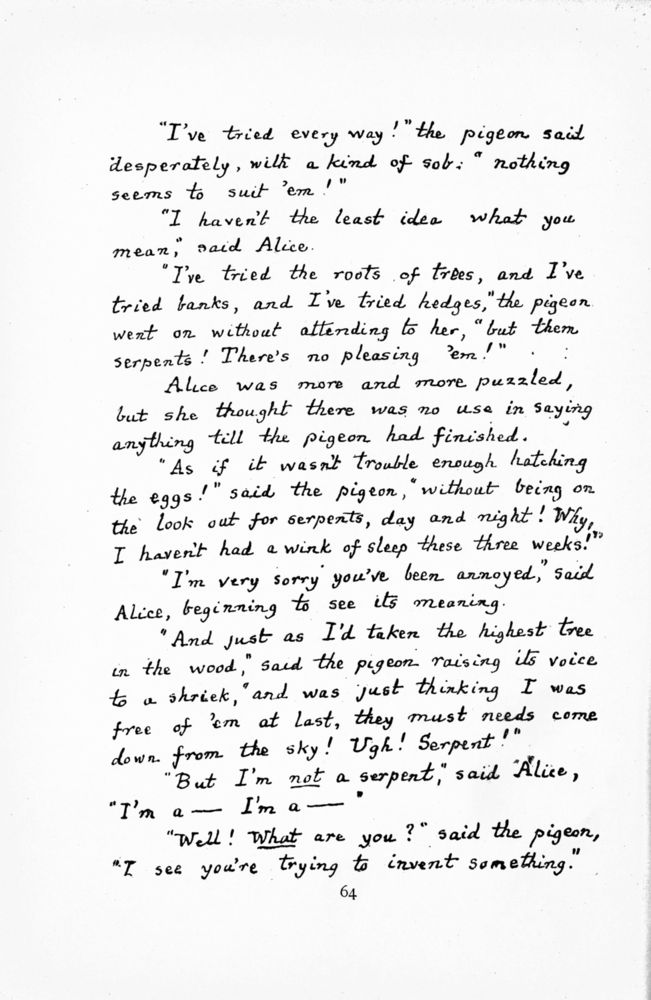 "I've tried every way!" the pigeon said
desperately, with a kind of sob: "nothing
seems to suit 'em!"
"I haven't the least idea what you
mean," said Alice.
"I've tried the roots of trees, and I've
tried banks, and I've tried hedges," the pigeon
went on without attending to her, "but them
serpents! There's no pleasing 'em!"
Alice was more and more puzzled,
but she thought there was no use in saying
anything till the pigeon had finished.
"As if it wasn't trouble enough hatching
the eggs!" said the pigeon, "without being on
the look out for serpents, day and night! Why,
I haven't had a wink of sleep these three weeks!"
"I'm very sorry you've been annoyed," said
Alice, beginning to see its meaning.
"And just as I'd taken the highest tree
in the wood," said the pigeon raising its voice
to a shriek, "and was just thinking I was
free of 'em at last, they must needs come
down from the sky! Ugh! Serpent!"
"But I'm not a serpent," said Alice,
"I'm a — I'm a — "
"Well! What are you?" said the pigeon,
"I see you're trying to invent something."
64